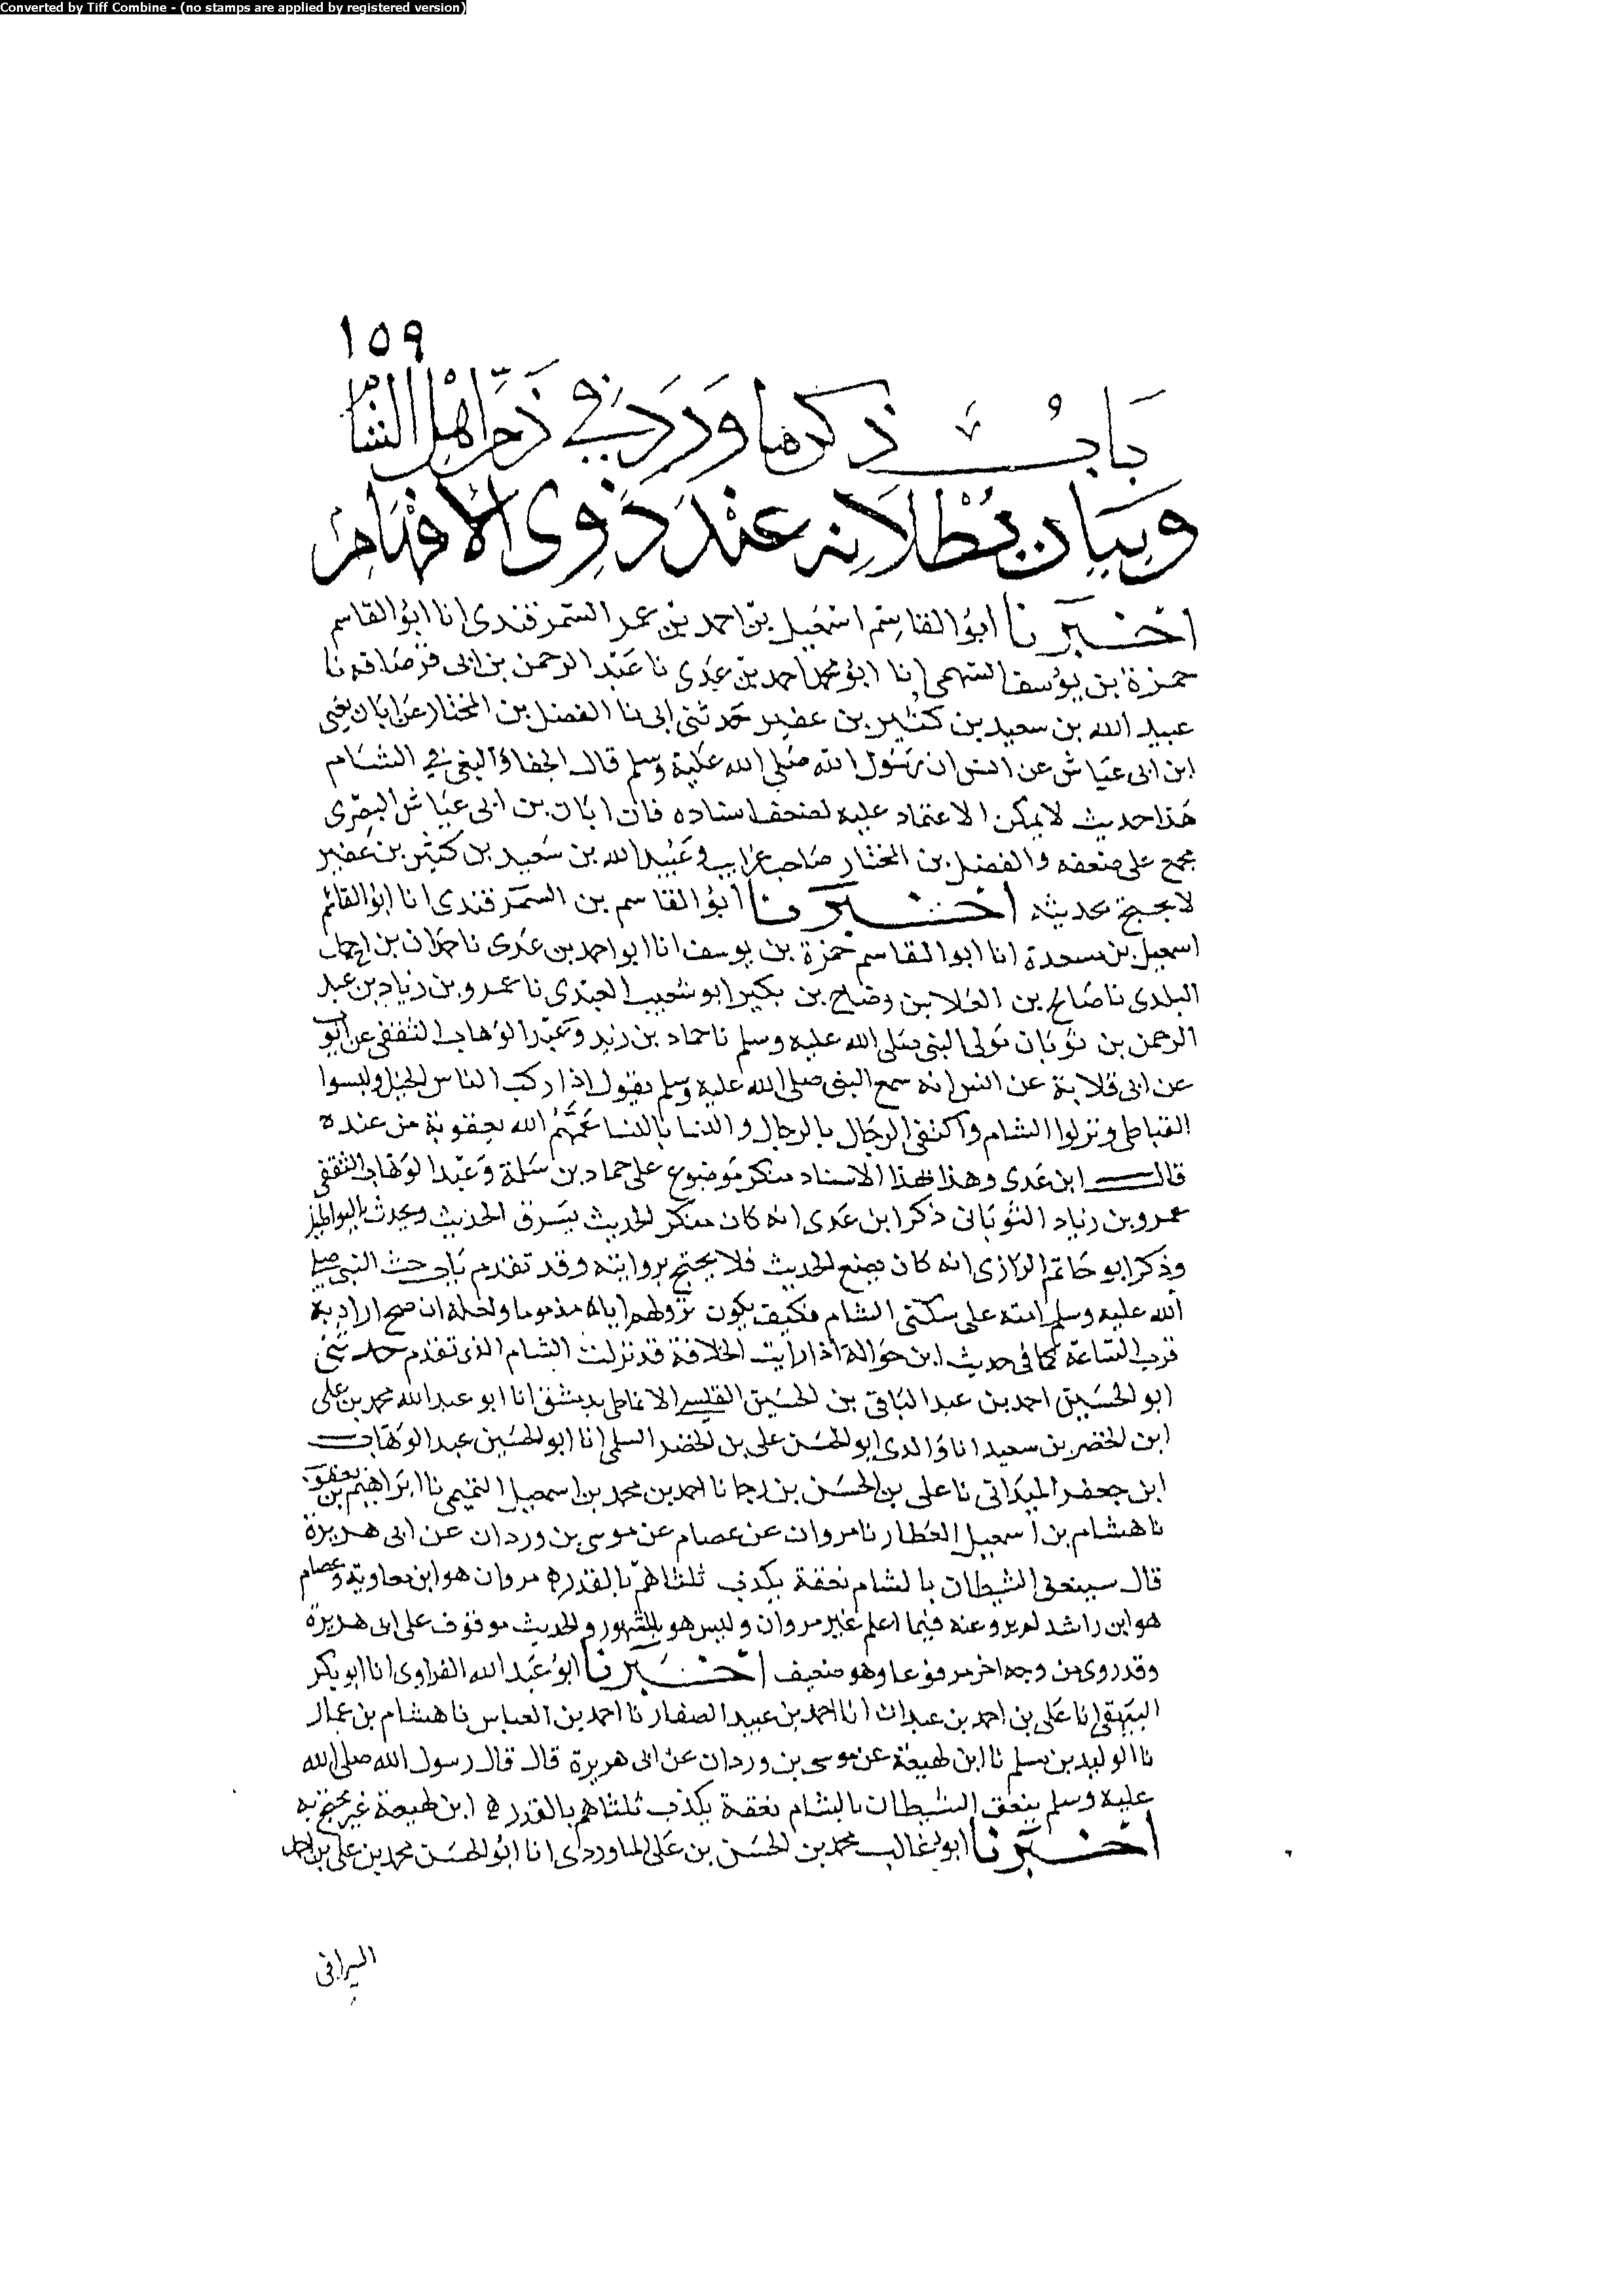 Converted by Tiff Combine - (no stamps are applied by registered version)
١٥٩
باب ذكر ما ورد في ذم اهل الشام
وبيان بطلانه عند ذوى الافهام
اخبرنا ابو القاسم اسمعيل بن احمد بن عمر السمرقندى انا ابو القاسم
حمزة بن يوسف السهمى انا ابو محمد احمد بن عدى نا عبد الرحمن بن ابى قرصافه نا
عبيد الله بن سعيد بن كثير بن عفير حدثنى ابى نا الفضل بن المختار عن ابان يعنى
ابن ابى عياش عن انس ان رسول الله صلى الله عليه وسلم قال الجفا والبغى في الشام
هذا حديث لا يمكن الاعتماد عليه لضعف اسناده فان ابان بن ابى عياش البصرى
مجمع على ضعفه والفضل بن المختار صاحب غرايب وعبيد الله بن سعيد بن كثير بن عفير
لا يحتج بحديثه اخبرنا ابو القاسم بن السمرقندى انا ابو القاسم
اسمعيل بن مسعدة انا ابو القاسم حمزة بن يوسف انا ابو احمد بن عدى نا حمدان بن احمد
البلدى نا صالح بن العلا بن وضاح بن بكير ابو شعيب العبدى نا عمرو بن زياد بن عبد
الرحمن بن ثوبان مولى النبى صلى الله عليه وسلم نا حماد بن زيد وعبد الوهاب الثقفى عن ايوب
عن ابى قلابة عن انس انه سمع النبى صلى الله عليه وسلم يقول اذا ركب الناس الخيل ولبسوا
القباطى ونزلوا الشام واكتفى الرجال بالرجال والنسا بالنسا عمهم الله بعقوبة من عنده
قال ابن عدى وهذا بهذا الاسناد منكر موضوع على حماد بن سلمة وعبد الوهاب الثقفى
عمرو بن زياد الثوبانى ذكر ابن عدى انه كان منكر الحديث يسرق الحديث ويحدث بالبواطيل
وذكر ابو حاتم الرازى انه كان يضع الحديث فلا يحتج بروايته وقد تقدم باب حث النبى صلى
الله عليه وسلم امته على سكنى الشام فكيف يكون نزولهم اياه مذموما ولعله ان صح اراد به
قرب الساعة كما في حديث ابن حوالة اذا رايت الخلافة قد نزلت الشام الذى تقدم حدثنى
ابو الحسين احمد بن عبد الباقى بن الحسين القيسى الانماطى بدمشق انا ابو عبد الله محمد بن على
ابن الخضر بن سعيد انا والدى ابو الحسن على بن الخضر السلمى انا ابو الحسين عبد الوهاب
ابن جعفر الميدانى نا على بن الحسن بن رجا نا احمد بن محمد بن اسمعيل التميمى نا ابراهيم بن يعقوب
نا هشام بن اسمعيل العطار نا مروان عن عصام عن موسى بن وردان عن ابى هريرة
قال سينعق الشيطان بالشام نعقة يكذب ثلثاهم بالقدر ه مروان هو ابن معاوية وعصام
هو ابن راشد لم يرو عنه فيما اعلم غير مروان وليس هو بالمشهور والحديث موقوف على ابى هريرة
وقد روى من وجه اخر مرفوعا وهو ضعيف اخبرنا ابو عبد الله الفراوى انا ابو بكر
البيهقى انا على بن احمد بن عبدان انا احمد بن عبيد الصفار نا احمد بن العباس نا هشام بن عمار
نا الوليد بن مسلم نا ابن لهيعة عن موسى بن وردان عن ابى هريرة قال قال رسول الله صلى الله
عليه وسلم ينعق الشيطان بالشام نعقة يكذب ثلثاهم بالقدر ه ابن لهيعة غير محتج به
اخبرنا ابو غالب محمد بن الحسن بن على الماوردى انا ابو الحسن محمد بن على بن احمد
السيرافى